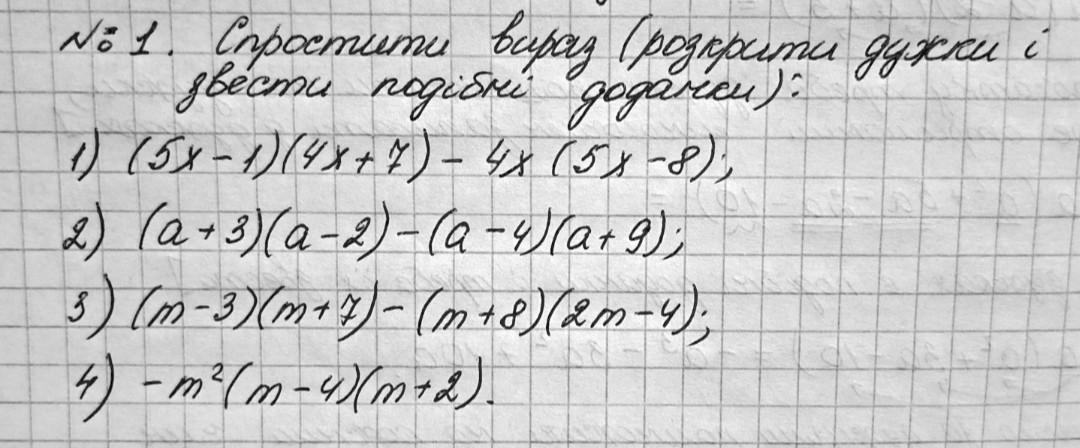 № 1. Спростити вираз (розкрити дужки і
звести подібні доданки):
1) (5x - 1)(4x + 7) - 4x (5x - 8);
2) (a + 3)(a - 2) - (a - 4)(a + 9);
3) (m - 3)(m + 7) - (m + 8)(2m - 4);
4) - m²(m - 4)(m + 2).